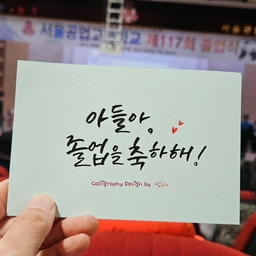 서울공업고등학교 제117회 졸업식
아들아,
졸업을 축하해!
Calligraphy Design by